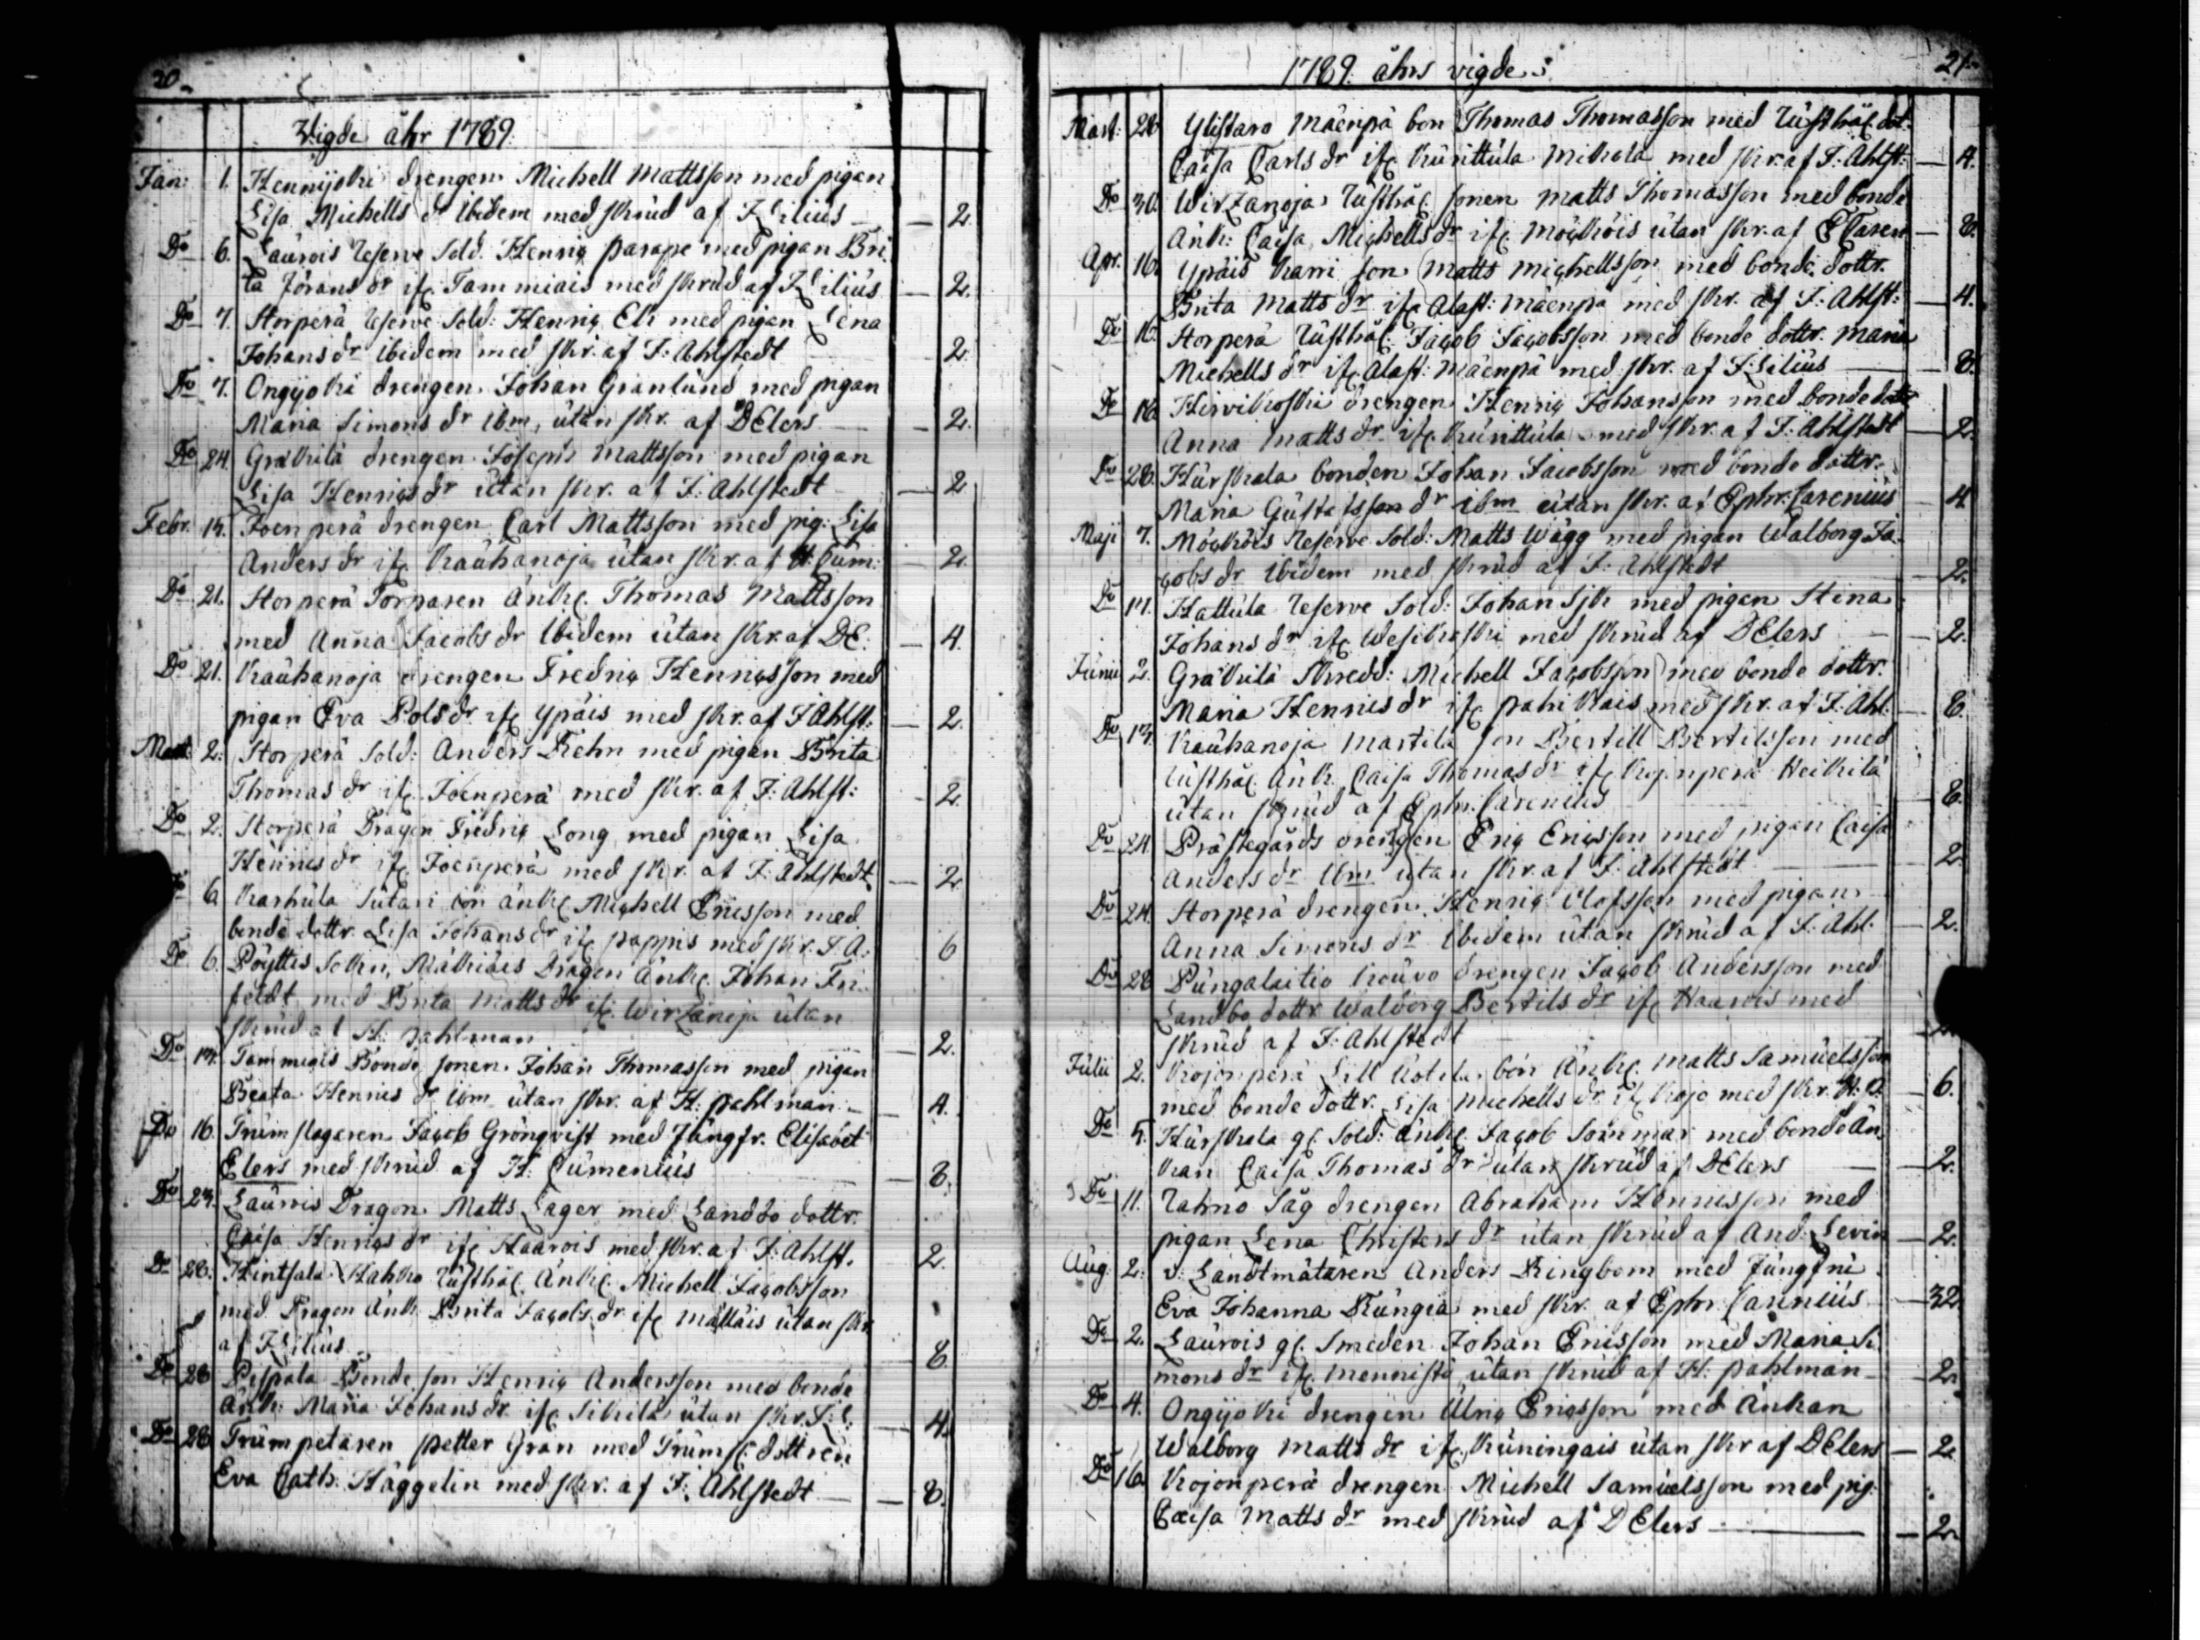 20.
Wigde åhr 1789.
Jan: 1. Hennijoki drengen Michell Mattsson med pigan
Lisa Michells dr ibidem med skrud af F Lilius — 2.
Do 6. Laurois reserve sold. Henriq Parape med pigan Bri
ta Jörans dr ifr. Tammiais med skrud af F Lilius — 2.
Do 7. Storperä reserve sold: Henriq Ek med pigan Lena
Johans dr ibidem med skr. af F: Ahlstedt — 2.
Do 7. Ongijoki drengen Johan Granlund med pigan
Maria Simons dr ibm, utan skr. af D Elers — 2.
Do 24 Gräkilä drengen Joseph Mattsson med pigan
Lisa Henriqs dr utan skr. af F. Ahlstedt — 2
Febr. 14. Joenperä drengen Carl Mattsson med pig. Lisa
Anders dr ifr. Kauhanoja utan skr. af H. Cum: — 2.
Do 21. Storperä Torparen Änkl. Thomas Mattsson
med Anna Jacobs dr ibidem utan skr. af DE. — 4.
Do 21. Kauhanoja drengen Fredriq Henriqsson med
pigan Eva Pols dr ifr Ypäis med skr. af F Ahlst: — 2.
Mart 2. Storperä Sold: Anders Rehn med pigan Brita
Thomas dr ifr. Joenperä med skr. af F: Ahlst: — 2.
Do 2. Storperä Dragon Fredriq Long med pigan Lisa
Henrics dr ifr Joenperä med skr. af F: Ahlstedt — 2
Do 6. Karhula Sutari bon änkl Michell Ericsson med
bonde dottr. Lisa Johans dr ifr pappis med skr. F A. 6
Do 6. Pöyttis Sokn, Mäkiäis Dragon Änkl. Johan Fri
feldt med Brita Matts dr ifr. Wirzanoja utan
skrud af H. Pahlman — 2.
Do 14. Tammiais Bonde sonen Johan Thomasson med pigan
Beata Henrics dr ibm utan skr. af H. Pahlman — 4.
Do 16. Trumslagaren Jacob Grönqvist med Jungfr. Elisabet
Elers med skrud af H. Cumenius — 8.
Do 24. Laurois Dragon Matts Lager med Landbo dottr.
Caisa Henriqs dr ifr Haarois med skr. af F: Ahlst. 2.
Do 28. Hintsala Hakko rusthål. Änkl. Michell Jacobsson
med Dragon Änk. Brita Jacobs dr ifr Mälläis utan skr.
af F Lilius 8
Do 28 Pispala Bonde son Henriq Andersson med bonde
Änk: Maria Johans dr. ifr Sikilä utan skr. F: L. — 4.
Do 28 Trumpetaren Petter Gran med Trumsl. dottren
Eva Cath. Häggelin med skr. af F. Ahlstedt — 8.
1789. åhrs vigde: 21.
Mart: 28 Ylistaro Mäenpä bon Thomas Thomasson med rusthål. dot.
Caisa Carls dr ifr Kurittula Mikola med skr. af F. Ahlst: — 4.
Do 30. Wirzanoja rusthål. sonen Matts Thomasson med bonde
Änk: Caisa Michells dr ifr Möykois utan skr. af E Caren — 8.
Apr. 16. Ypäis Karri son Matts Michellsson med bonde dottr.
Brita Matts dr ifr Alast: Mäenpä med skr. af F. Ahlst: — 4.
Do 16. Storperä rusthål. Jacob Jacobsson med bonde dottr. Maria
Michells dr ifr Alast: Mäenpä med skr. af F: Lilius — 8.
Do 16. Hirvikoski drengen Henriq Johansson med bonde dottr
Anna Matts dr ifr Kurittula med skr. af F. Ahlstedt — 2.
Do 26. Hurskala bonden Johan Jacobsson med bonde dottr.
Maria Gustafsson dr ibm utan skr. af Ephr. Carenius — 4
Maji 7. Möykois reserve sold: Matts Wägg med pigan Walborg Ja
cobs dr ibidem med skrud af F. Ahlstedt 2.
Do 17. Hattula reserve Sold: Johan Sjk med pigan Stina
Johans dr ifr Wesikoski med skrud af D Elers — 2.
Junii 2. Gräkilä Skredd: Michell Jacobsson med bonde dottr.
Maria Henrics dr ifr Pahikais med skr. af F: Ahl. — 8.
Do 14. Kauhanoja Martila son Bertill Bertilsson med
rusthål änk. Caisa Thomas dr ifr Kojonperä Heikilä
utan skrud af Ephr. Carenius — 8.
Do 24. Prästegårds drengen Eriq Ericsson med pigan Caisa
Anders dr ibm utan skr. af F. Ahlstedt — 2.
Do 24. Storperä drengen Henriq Olofsson med pigan
Anna Simons dr ibidem utan skrud af F. Ahl. — 2.
Do 28 Pungalaitio Kouvo drengen Jacob Andersson med
Landbo dottr. Walborg Bertils dr ifr Haarois med
skrud af F. Ahlstedt
Julii 2. Kojonperä Lill bon Änkl. Matts Samuelsson
med bonde dottr. Lisa Michells dr ifr Kojo med skr. — 6.
Do 5. Hurskala gl. Sold: änkl. Jacob Sommar med bonde Än
kan Caisa Thomas dr utan skrud af D Elers — 2.
Do 11. Rahno Såg drengen Abraham Henricsson med
pigan Lena Christers dr utan skrud af And: Levin — 2.
Aug. 2. v. Landtmätaren Anders Ringbom med Jungfru
Eva Johanna Rungia med skr. af Ephr. Carenius — 32
Do 2. Laurois gl. Smeden Johan Ericsson med Maria Si
mons dr ifr Mennistö utan skrud af H. Pahlman — 2.
Do 4. Ongijoki drengen Ulriq Ericsson med Änkan
Walborg Matts dr ifr. Kuningais utan skr af D Elers — 2
Do 16. Kojonperä drengen Michell Samuelsson med pig.
Caisa Matts dr med skrud af D Elers — 2.